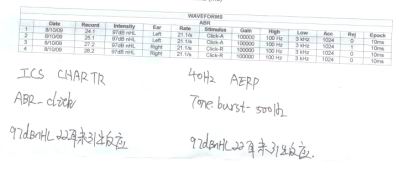 WAVEFORMS
ABR
Date Record Intensity Ear Rate Stimulus Gain High Low Acc Rej Epoch
1 8/10/09 24.1 97dB nHL Left 21.1/s Click-A 100000 100 Hz 3 kHz 1024 0 10ms
2 8/10/09 25.1 97dB nHL Left 21.1/s Click-A 100000 100 Hz 3 kHz 1024 1 10ms
3 8/10/09 27.2 97dB nHL Right 21.1/s Click-R 100000 100 Hz 3 kHz 1024 0 10ms
4 8/10/09 28.2 97dB nHL Right 21.1/s Click-R 100000 100 Hz 3 kHz 1024 0 10ms
ICS CHARTR 40Hz AERP
ABR-click Tone burst-500Hz
97dBnHL 双耳未引出反应 97dBnHL 双耳未引出反应.